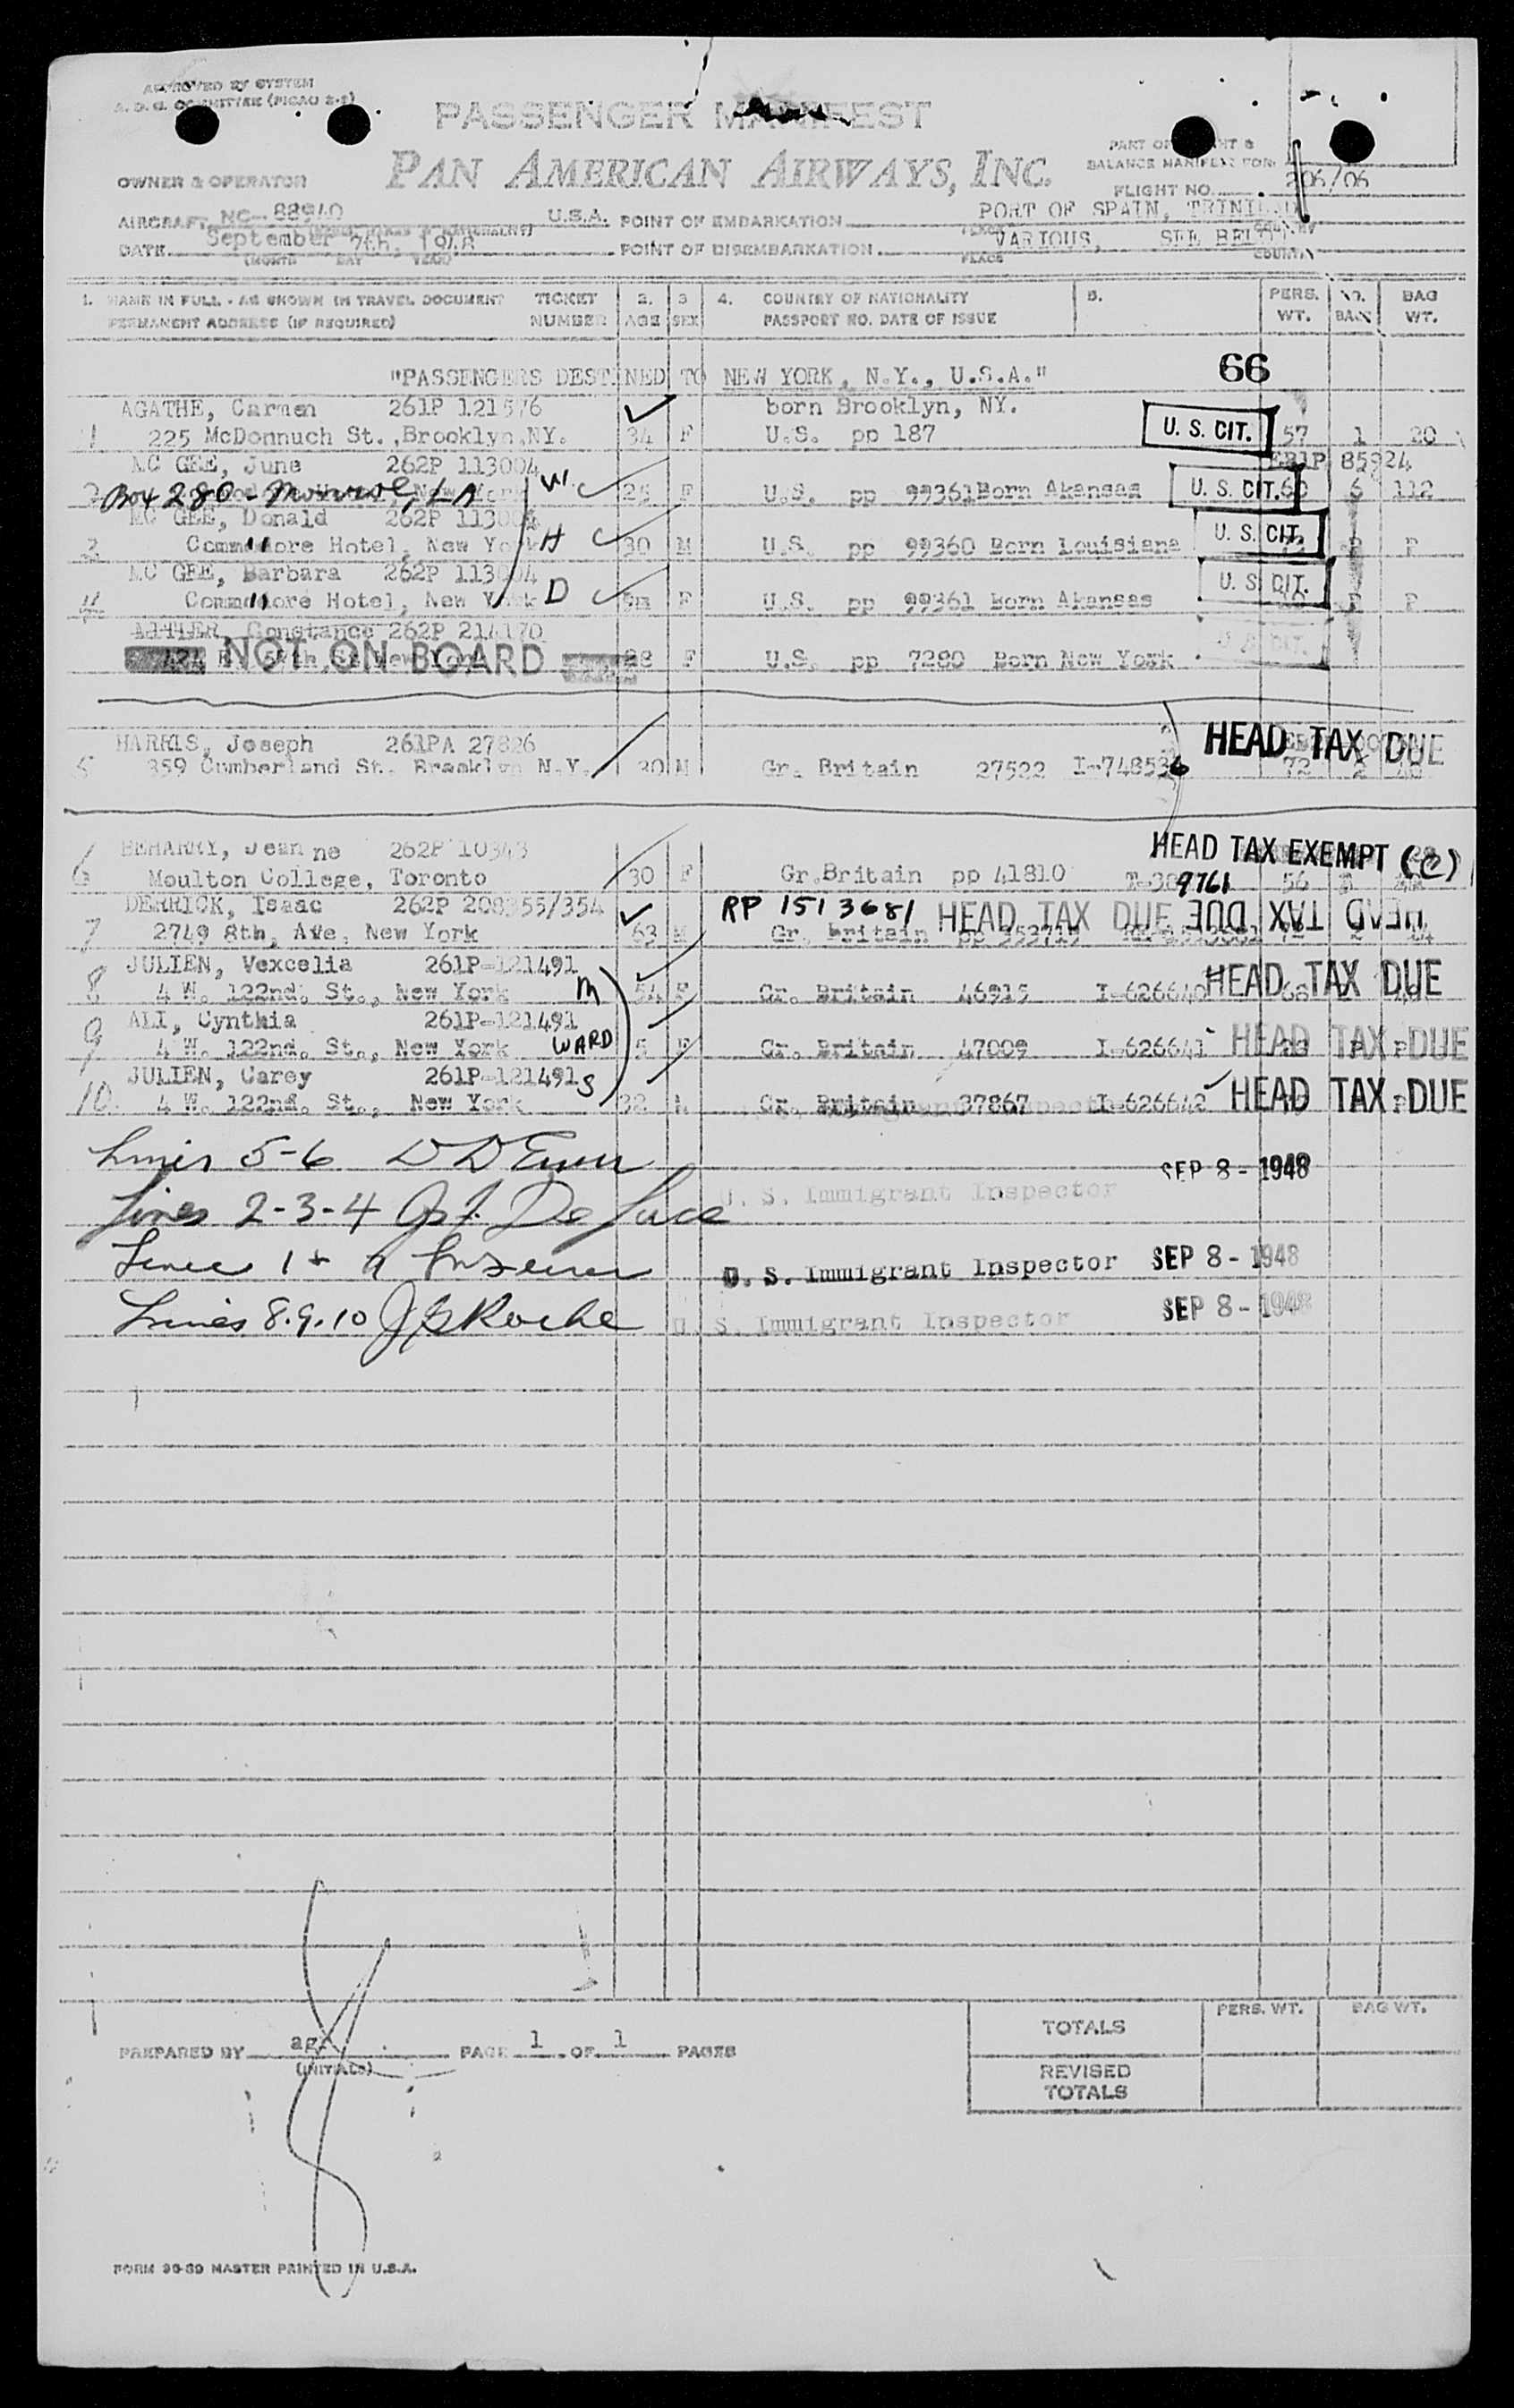 APPROVED BY SYSTEM
A. D. G. COMMITTEE (PICAO 2-2)
PASSENGER MANIFEST
PAN AMERICAN AIRWAYS, INC.
PART OF
BALANCE MANIFEST FOR:
OWNER & OPERATOR
FLIGHT NO. 206/06
AIRCRAFT NC- 88940 U.S.A. POINT OF EMBARKATION PORT OF SPAIN, TRINIDAD
DATE September 7th, 1948 POINT OF DISEMBARKATION VARIOUS, SEE BELOW
(MONTH DAY YEAR) PLACE COUNTRY
1. NAME IN FULL - AS SHOWN IN TRAVEL DOCUMENT TICKET 2. 3 4. COUNTRY OF NATIONALITY 5. PERS. NO. BAG
PERMANENT ADDRESS (IF REQUIRED) NUMBER AGE SEX PASSPORT NO. DATE OF ISSUE WT. BAGS WT.
"PASSENGERS DESTINED TO NEW YORK, N.Y., U.S.A." 66
AGATHE, Carmen 261P 121576 born Brooklyn, NY.
1 225 McDonnuch St.,Brooklyn,NY. 34 F U.S. pp 187 U. S. CIT. 57 1 20
MC GEE, June 262P 113004 EB1P 85924
2 Box 280 - Monroe, LA W. 25 F U.S. pp 99361 Born Akansas U. S. CIT. 60 6 112
MC GEE, Donald 262P 113004
3 Commodore Hotel, New York H 30 M U.S. pp 99360 Born Louisiana U. S. CIT. P P
MC GEE, Barbara 262P 113004
4 Commodore Hotel, New York D F U.S. pp 99361 Born Akansas U. S. CIT. P P
Constance 262P 214170
NOT ON BOARD 28 F U.S. pp 7280 Born New York U. S. CIT.
HARRIS, Joseph 261PA 27826 HEAD TAX DUE
5 859 Cumberland St. Brooklyn N.Y. 30 M Gr. Britain 27522 I-748536 72 2
BEHARRY, Jeanne 262P 10343 HEAD TAX EXEMPT (C)
6 Moulton College, Toronto 30 F Gr.Britain pp 41810 9761 56
DERRICK, Isaac 262P 208355/354 RP 1513681 HEAD TAX DUE HEAD TAX DUE
7 2749 8th, Ave, New York 63 M Gr. Britain pp 353715
JULIEN, Vexcelia 261P-121491
8 4 W. 122nd. St., New York M 54 F Gr. Britain 46915 I-626640 HEAD TAX DUE
ALI, Cynthia 261P-121491
9 4 W. 122nd. St., New York WARD 5 F Gr. Britain 47009 I-626641 HEAD TAX DUE
JULIEN, Carey 261P-121491 S
10. 4 W. 122nd. St., New York 32 M Gr. Britain 37867 I-626642 HEAD TAX DUE
Lines 5-6 SEP 8 - 1948
Lines 2-3-4 U. S. Immigrant Inspector
Lines 1 + 7 U. S. Immigrant Inspector SEP 8 - 1948
Lines 8.9.10 Roche U. S. Immigrant Inspector SEP 8 - 1948
PERS. WT. BAG WT.
TOTALS
PREPARED BY agr PAGE 1 OF 1 PAGES
(INITIALS)
REVISED
TOTALS
FORM 96-69 MASTER PRINTED IN U.S.A.